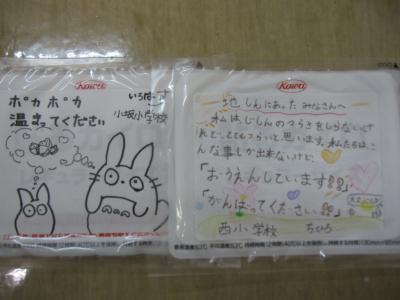 Kowa
ポカポカ
温まってください
小坂小学校
Kowa
地しんにあった みなさんへ
私はじしんのつらさをしらないけ
れど、とてもつらいと思います。私たちはこ
んな事しか出来ないけど、
「おうえんしています!!」
「がんばってください!!」
西小学校 ちひろ